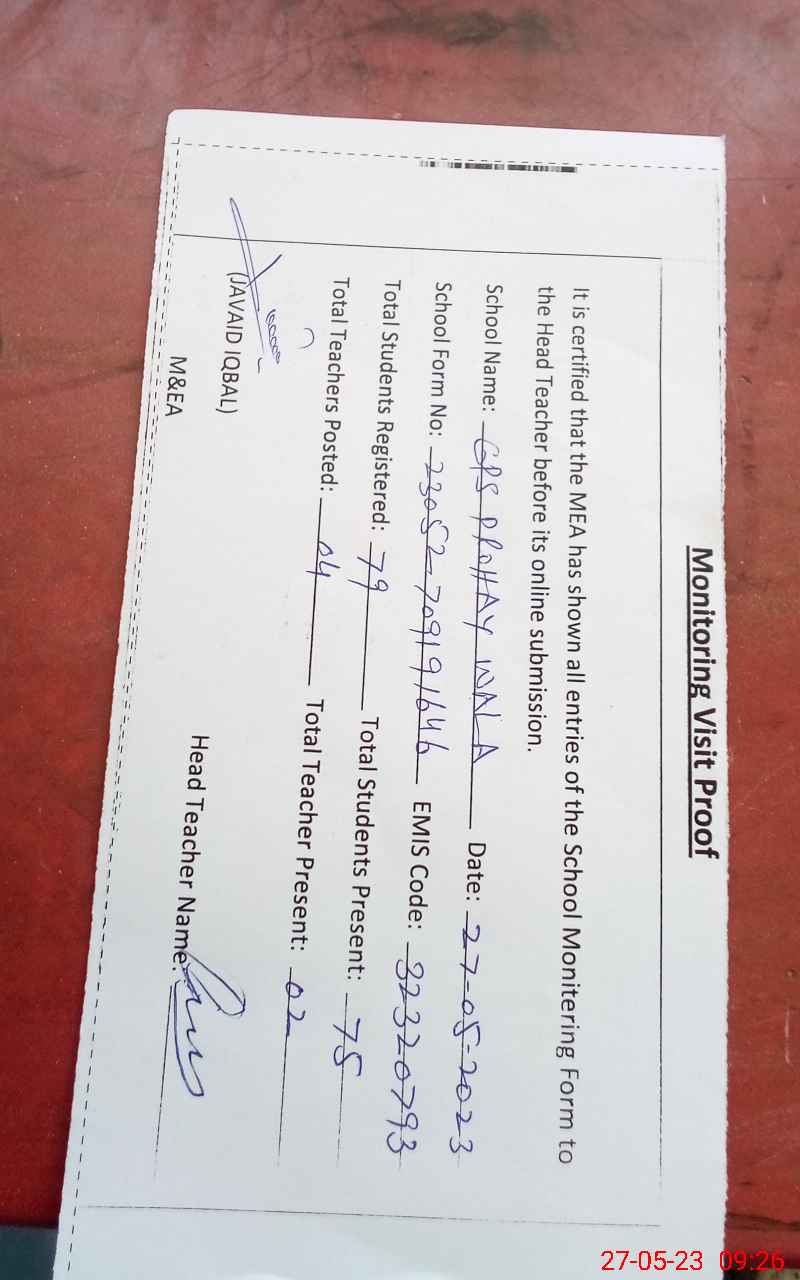 Monitoring Visit Proof
It is certified that the MEA has shown all entries of the School Monitering Form to
the Head Teacher before its online submission.
School Name: GPS PROHAY WALA Date: 27-05-2023
School Form No: 23052709191646 EMIS Code: 32320793
Total Students Registered: 79 Total Students Present: 75
Total Teachers Posted: 04 Total Teacher Present: 02
(JAVAID IQBAL)
M&EA
Head Teacher Name:
27-05-23 09:26